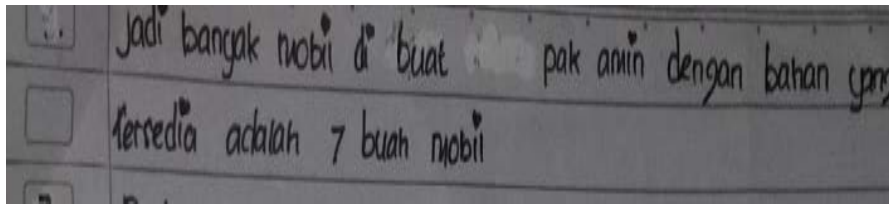 Jadi bangak mobil di buat pak amin dengan bahan yang
tersedia adalah 7 buah mobil